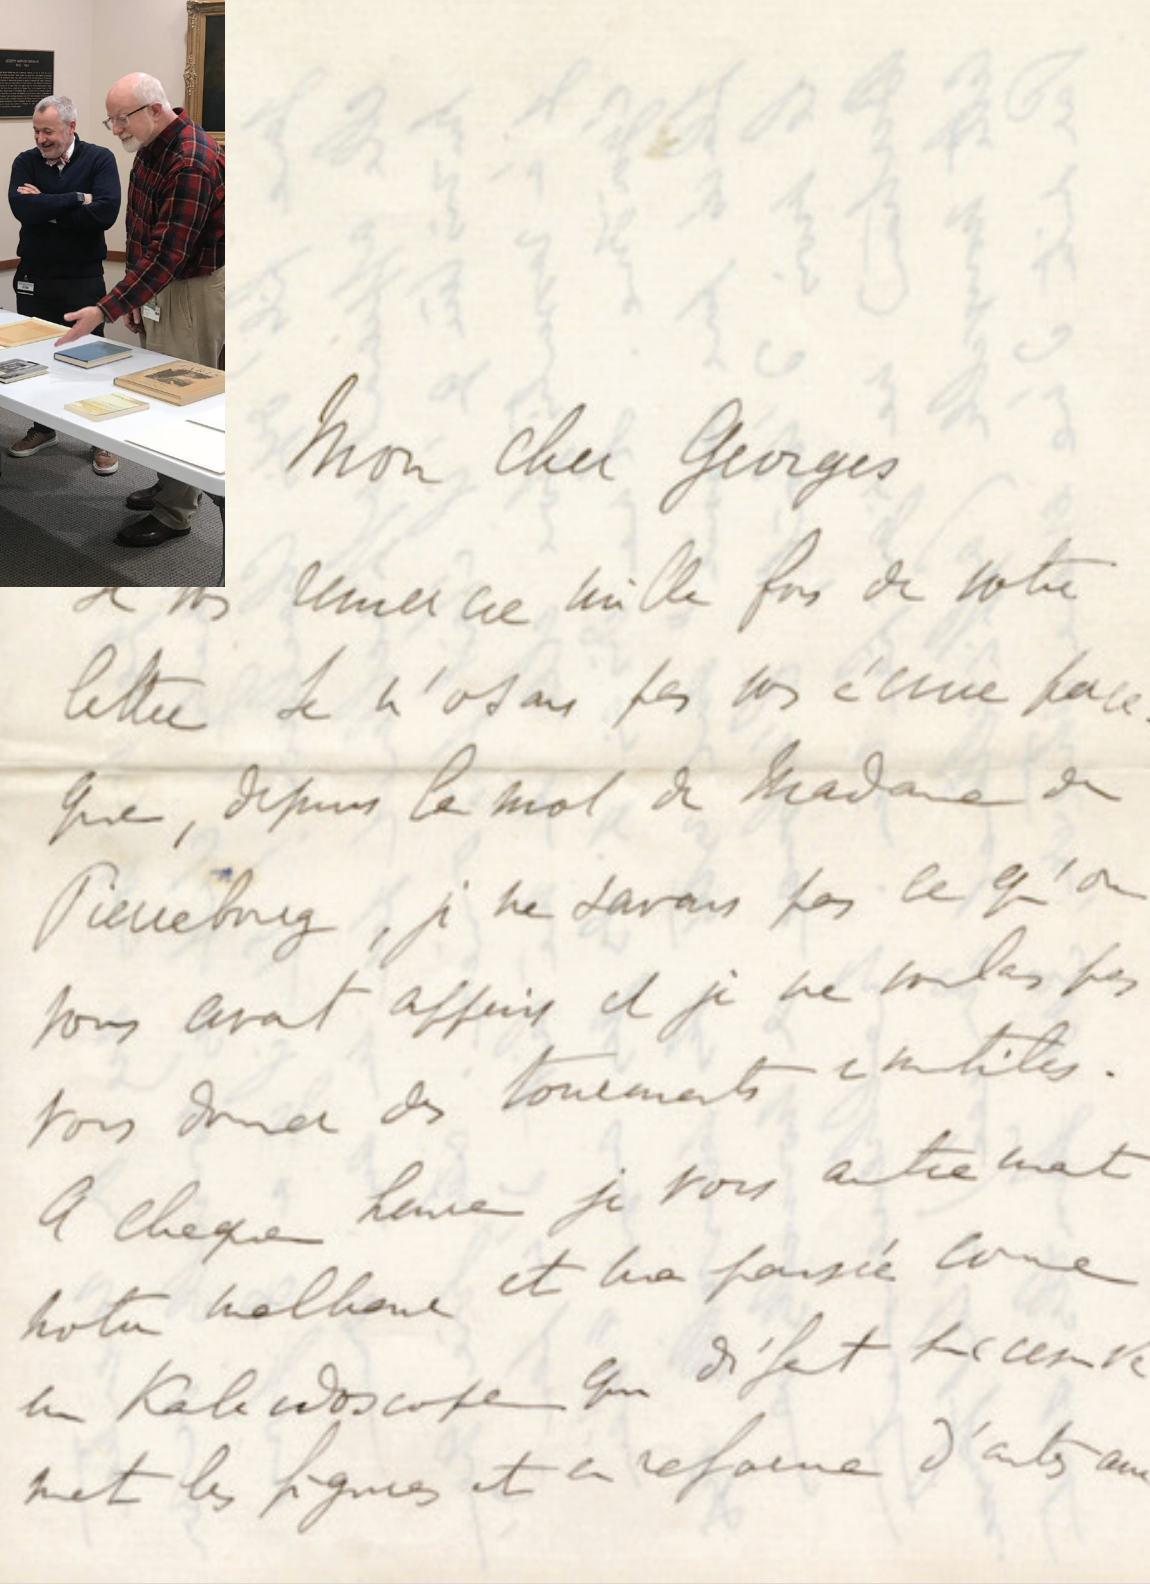 Mon cher Georges
Je vs remercie mille fois de votre
lettre Je n'osais pas vs écrire parce-
que, depuis le mot de Madame de
Pierrebourg, je ne savais pas ce qu'on
vous avait appris et je ne voulais pas
vous donner des tourments inutiles.
A chaque heure je vous
notre malheur et ma pensée comme
un Kaleidoscope qui défait
les figures et en reforme d'autres